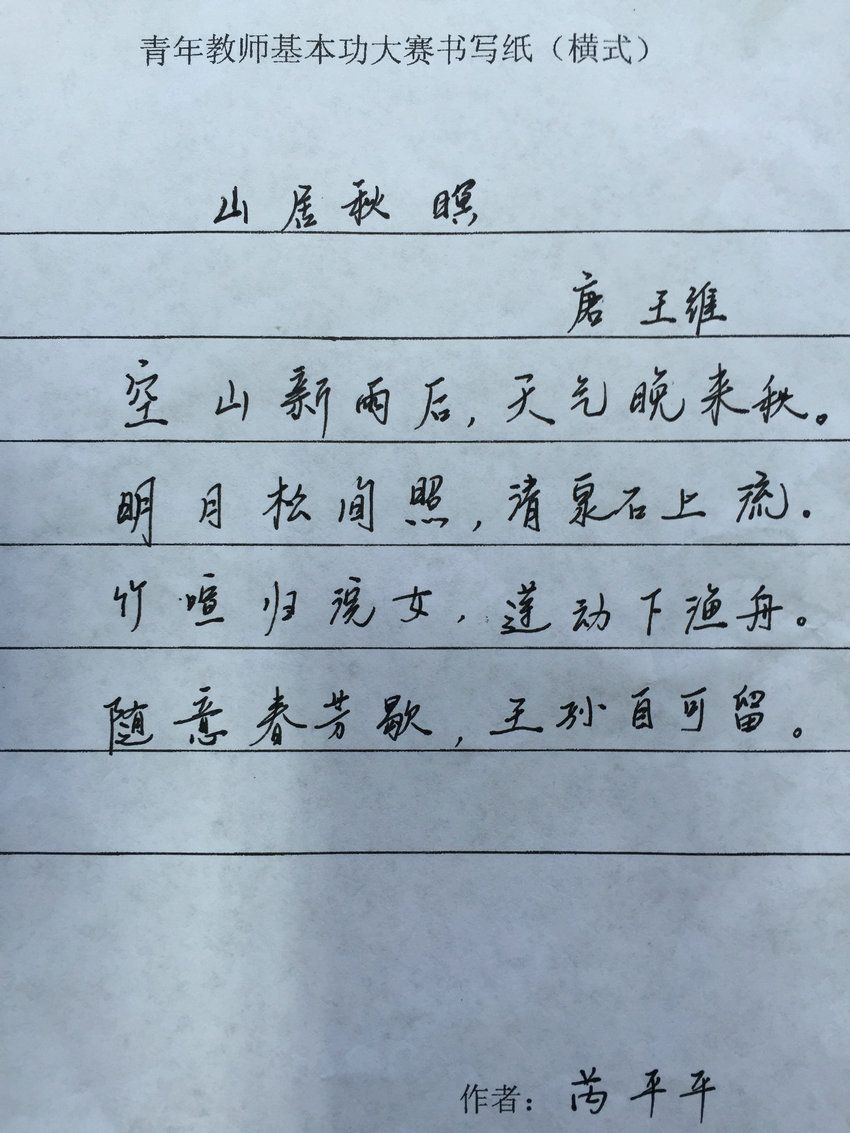 青年教师基本功大赛书写纸（横式）
山居秋暝
唐 王维
空山新雨后，天气晚来秋。
明月松间照，清泉石上流。
竹喧归浣女，莲动下渔舟。
随意春芳歇，王孙自可留。
作者：芮平平